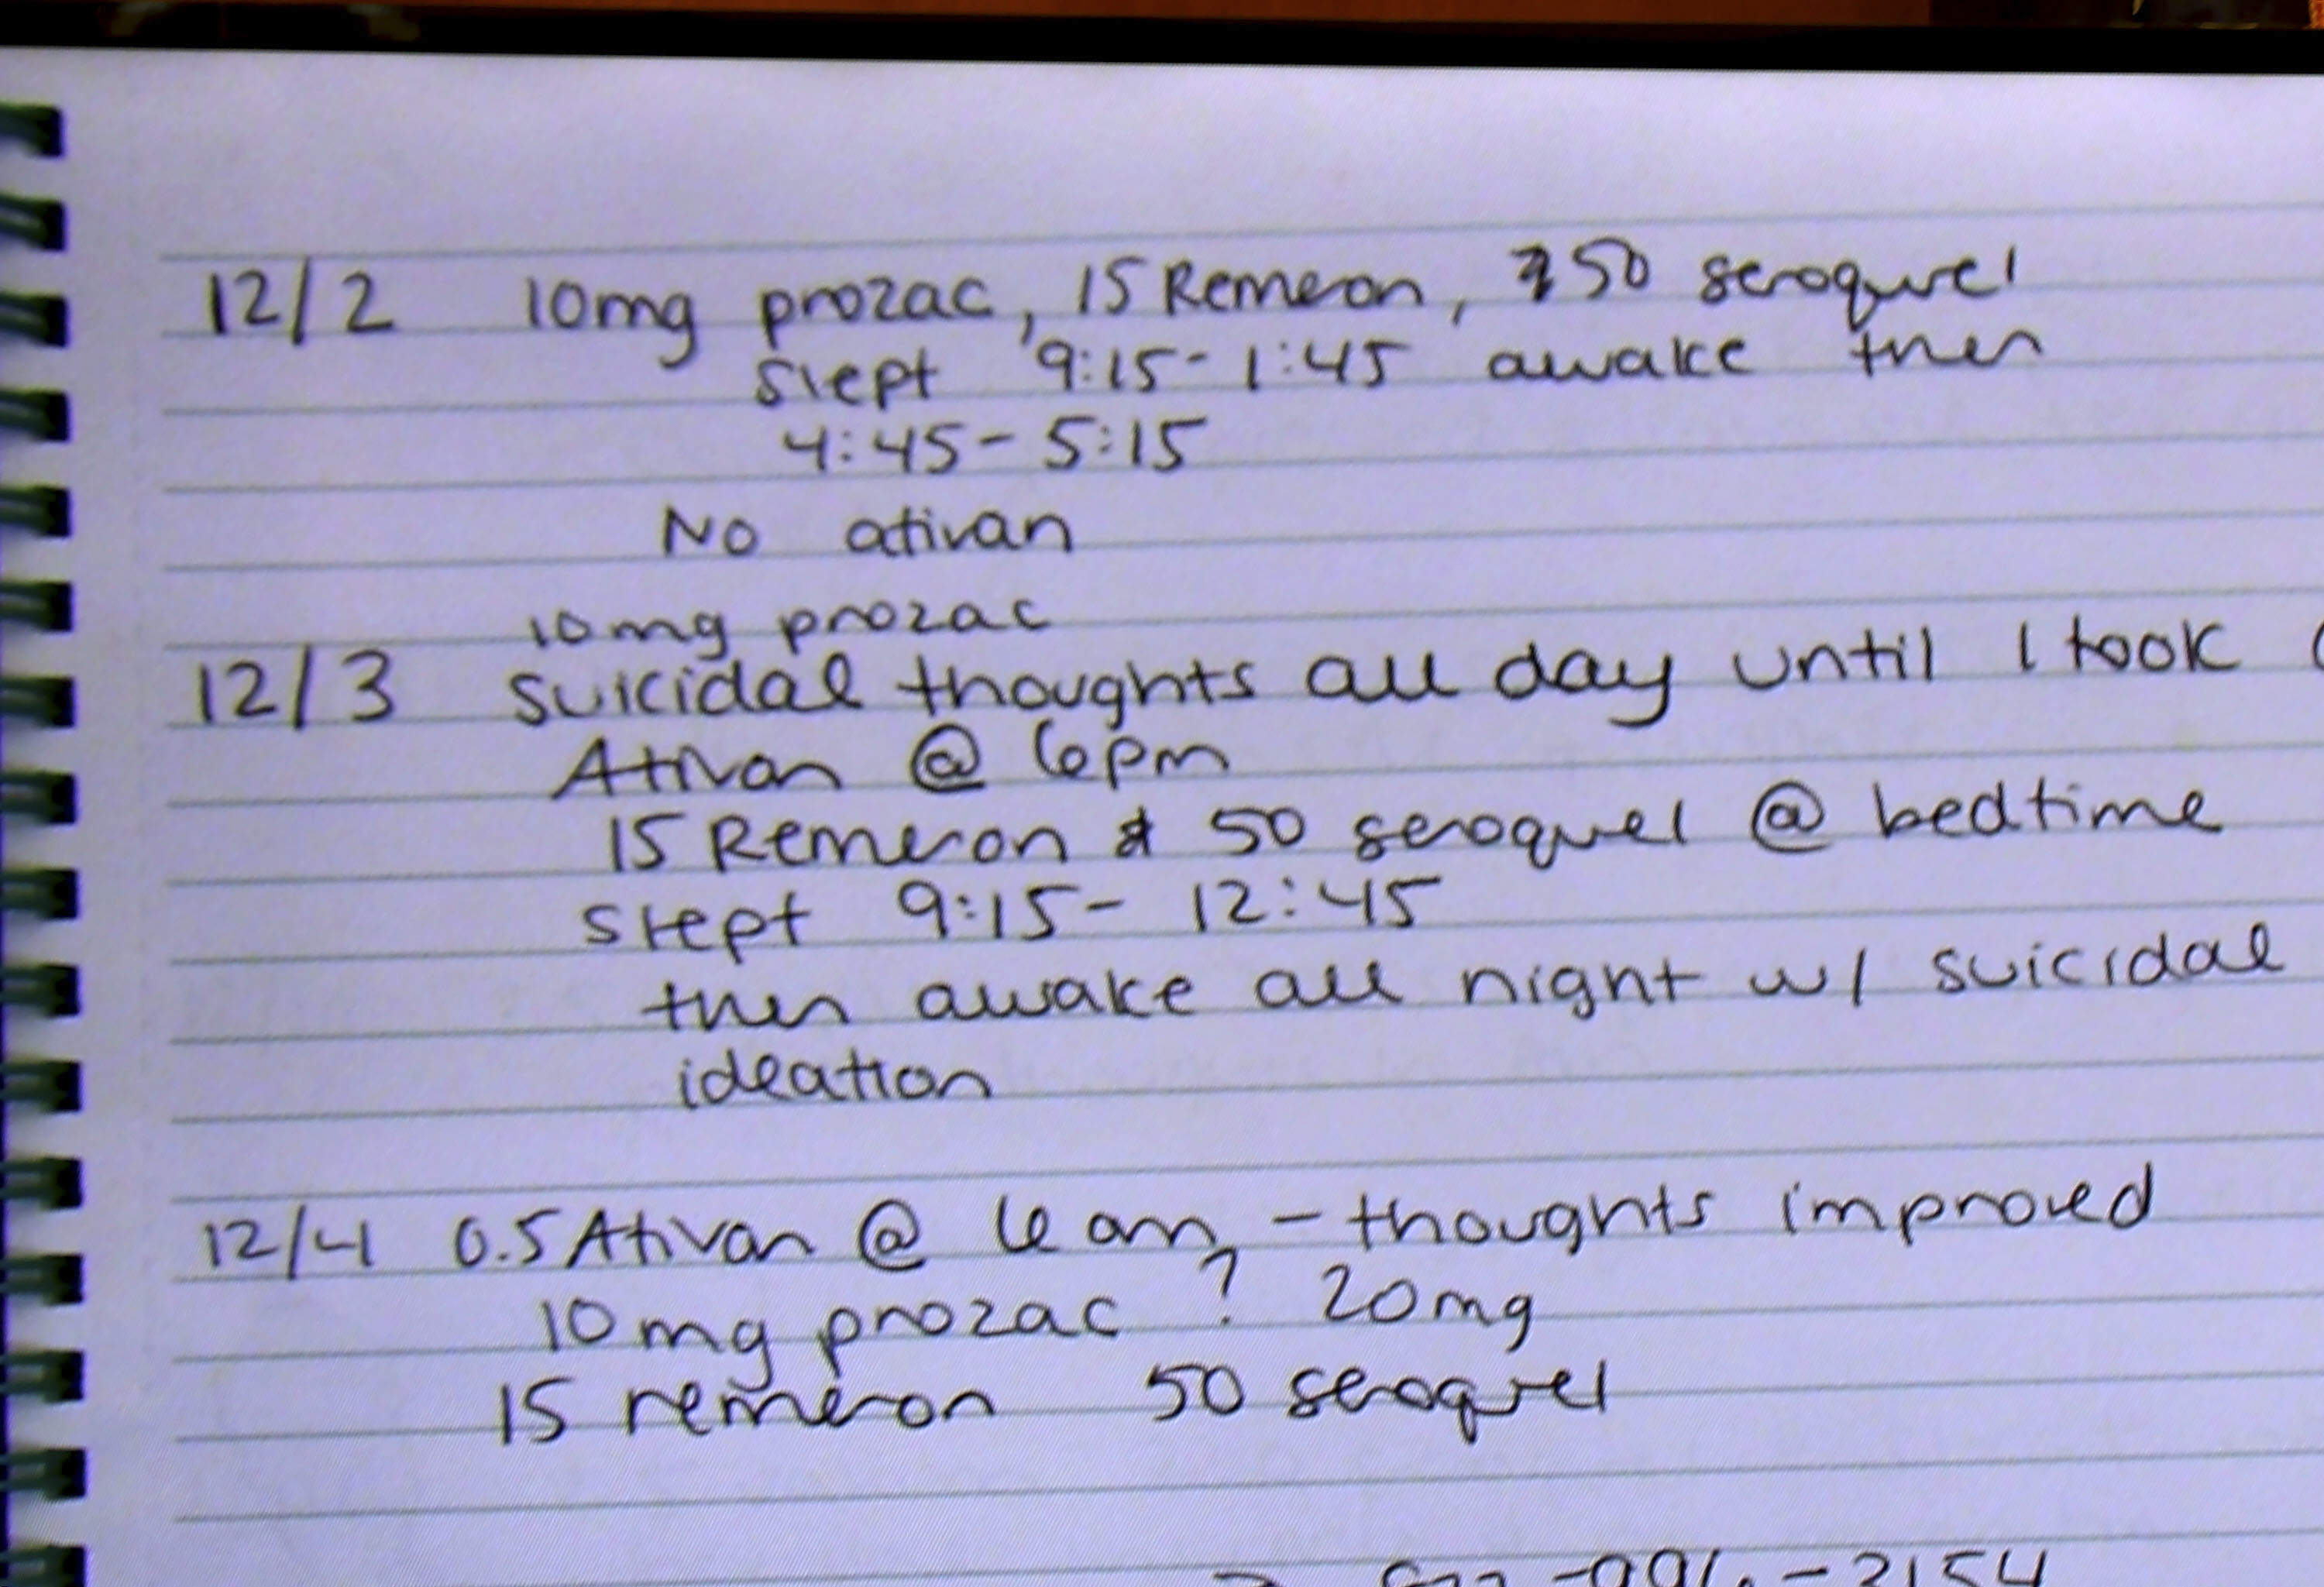 12/2 10mg prozac, 15 Remeron, 50 seroquel
slept 9:15-1:45 awake then
4:45-5:15
No ativan
10mg prozac
12/3 suicidal thoughts all day until I took
Ativan @ 6pm
15 Remeron & 50 seroquel @ bedtime
slept 9:15-12:45
then awake all night w/ suicidal
ideation
12/4 0.5 Ativan @ 6am - thoughts improved
10mg prozac ? 20mg
15 remeron 50 seroquel